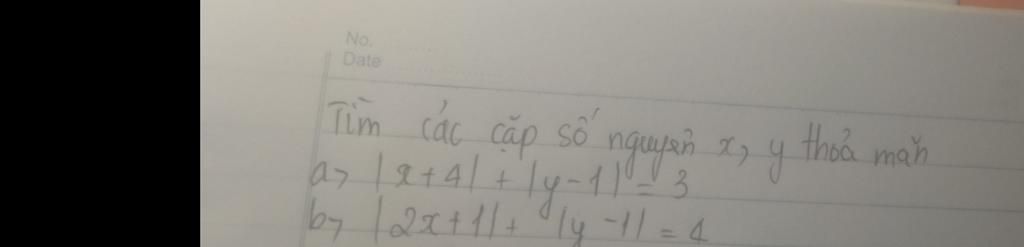 No.
Date
Tìm các cặp số nguyên x, y thoả mãn
a> |x+4| + |y-1| = 3
b> |2x+1| + |y-1| = 4